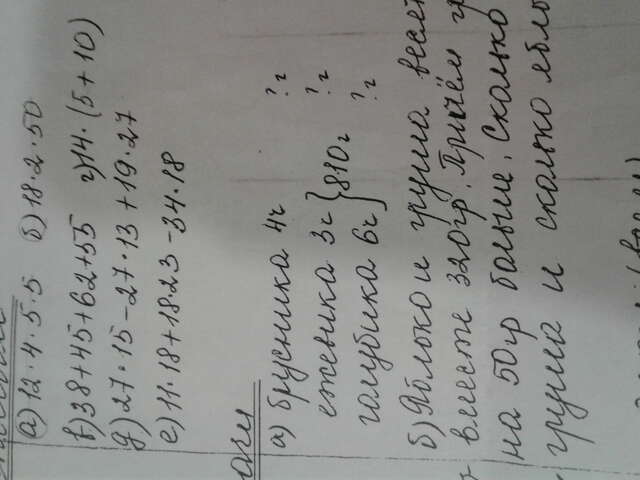 а) 12·4·5·5 б) 18·2·50
в) 38+45+62+55 г) 14·(5+10)
д) 27·15-27·13+19·27
е) 11·18+18·23-34·18
а) брусника 4ч ?г
ежевика 3ч } 810г ?г
голубика 6ч ?г
б) Яблоко и груша весят
вместе 320гр. Причём
на 50гр больше. Сколько
груша и сколько